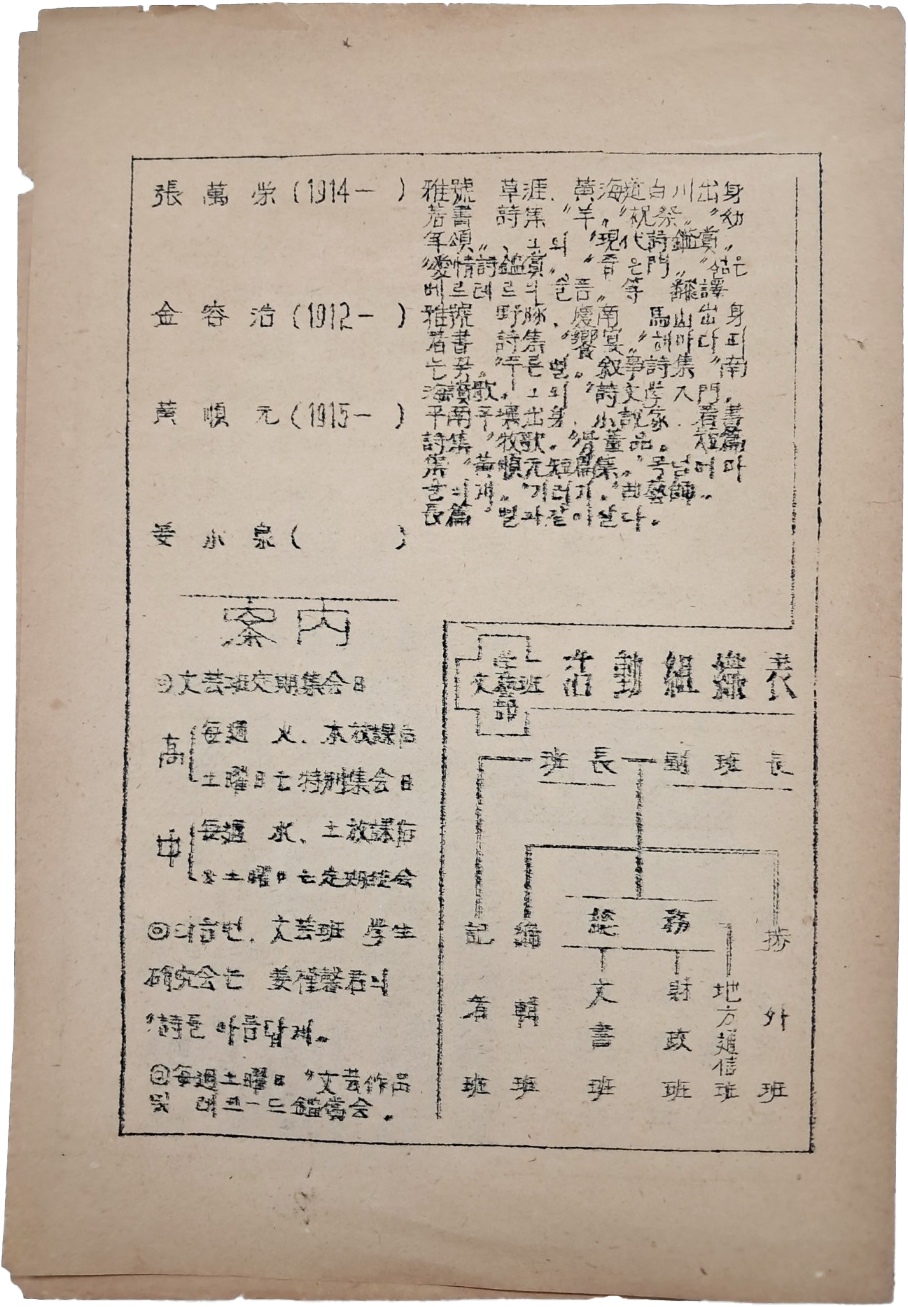 張 萬 栄 (1914— ) 雅號 草涯. 黃海道白川出身
著書 詩集 "羊", "祝祭", "幼
年頌", 그외 "現代詩鑑賞"
"愛情詩鑑賞", "香은門", "젊은
베르테르의 슬픔" 等 飜譯
金 容 浩 (1912— ) 雅號 野豚. 慶南 馬山出身
著書 詩集 "饗宴", "해마다 피
는꽃", "푸른별", 叙事詩集 "南
海讚歌", 그외 "詩文学入門"
黃 順 元 (1915— ) 平南平壤出身. 小說家. 著書
詩集 "牧歌", "骨董品", 短篇
集 "黃順元短篇集", "목넘어마
을의개", "기러기", "曲藝師"
長篇 "별과같이살다"
姜 小 泉 ( )
案内
◎文芸班定期集会日
高 每週 火、木放課后
土曜日는特別集会日
中 每週 水、土放課后
土曜日는定期総会
◎다음번, 文芸班 学生
研究会는 姜 馨君의
"詩를 아름답게"
◎每週土曜日 "文芸作品
및 레코ー드鑑賞会.
学藝部
文 班 活動組織表
班長 副班長
總 務
記者班
編輯班
文書班
財政班
地方通信班
涉外班